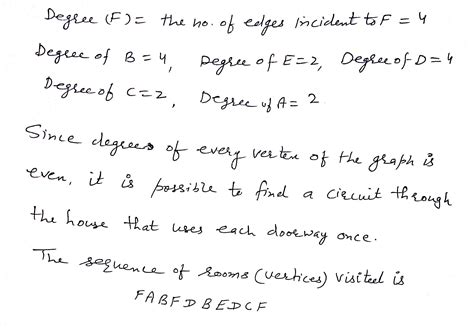 Degree (F) = the no. of edges incident to F = 4
Degree of B = 4, Degree of E = 2, Degree of D = 4
Degree of C = 2, Degree of A = 2
Since degrees of every vertex of the graph is
even, it is possible to find a circuit through
the house that uses each doorway once.
The sequence of rooms (vertices) visited is
FABFDBEDCF